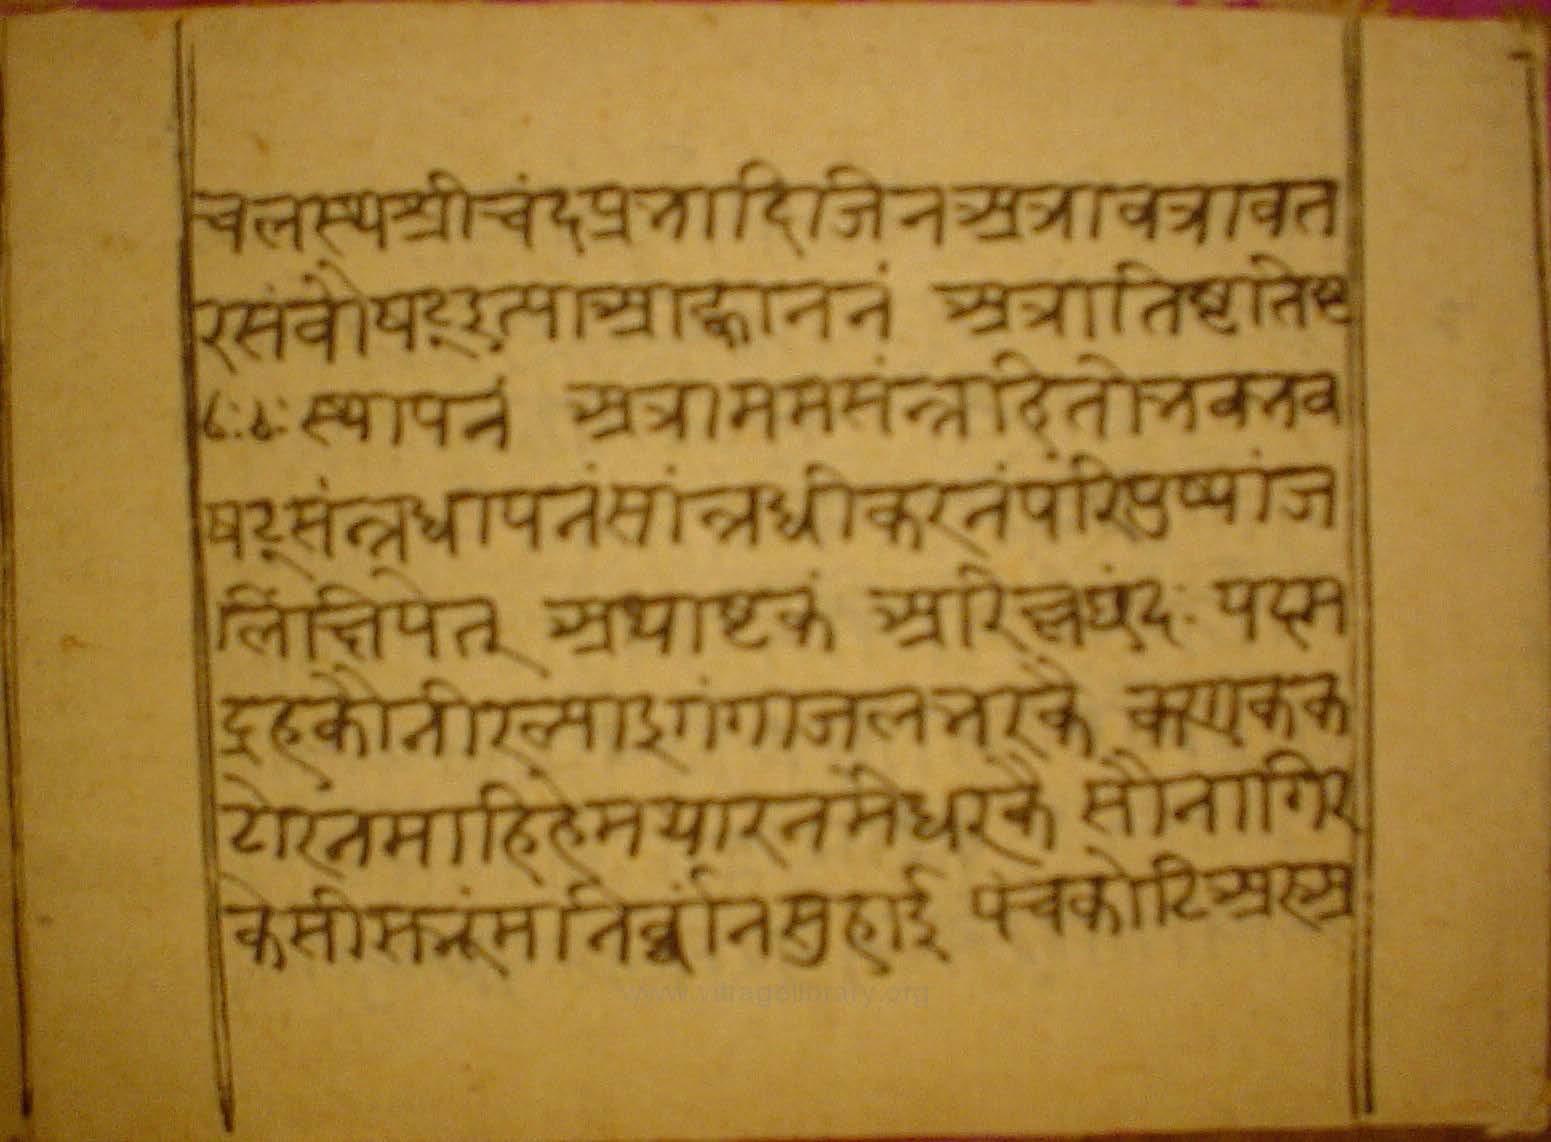 चलस्थश्रीचंदप्रभादिजिनअत्रावत्रावत
रसंवौषट्इत्याआह्वाननं अत्रातिष्टतिष्ट
ठःठःस्थापनं अत्राममसंन्नहितोभवभव
षट्संन्नधापनंसांन्नधीकरनंपंरिपुष्पांज
लिंक्षिपेत् अथाष्टकं अरिल्लछंदः पदम
द्रहकौनीरल्याइगंगाजलभरकै कणकक
टोरंनमाहिंहेमथारनमेंधरकै सौनागिर
केसीसभूंमनिर्व्वांनसुहाई पंचकोटिअरुअ
www.vitragolibrary.org